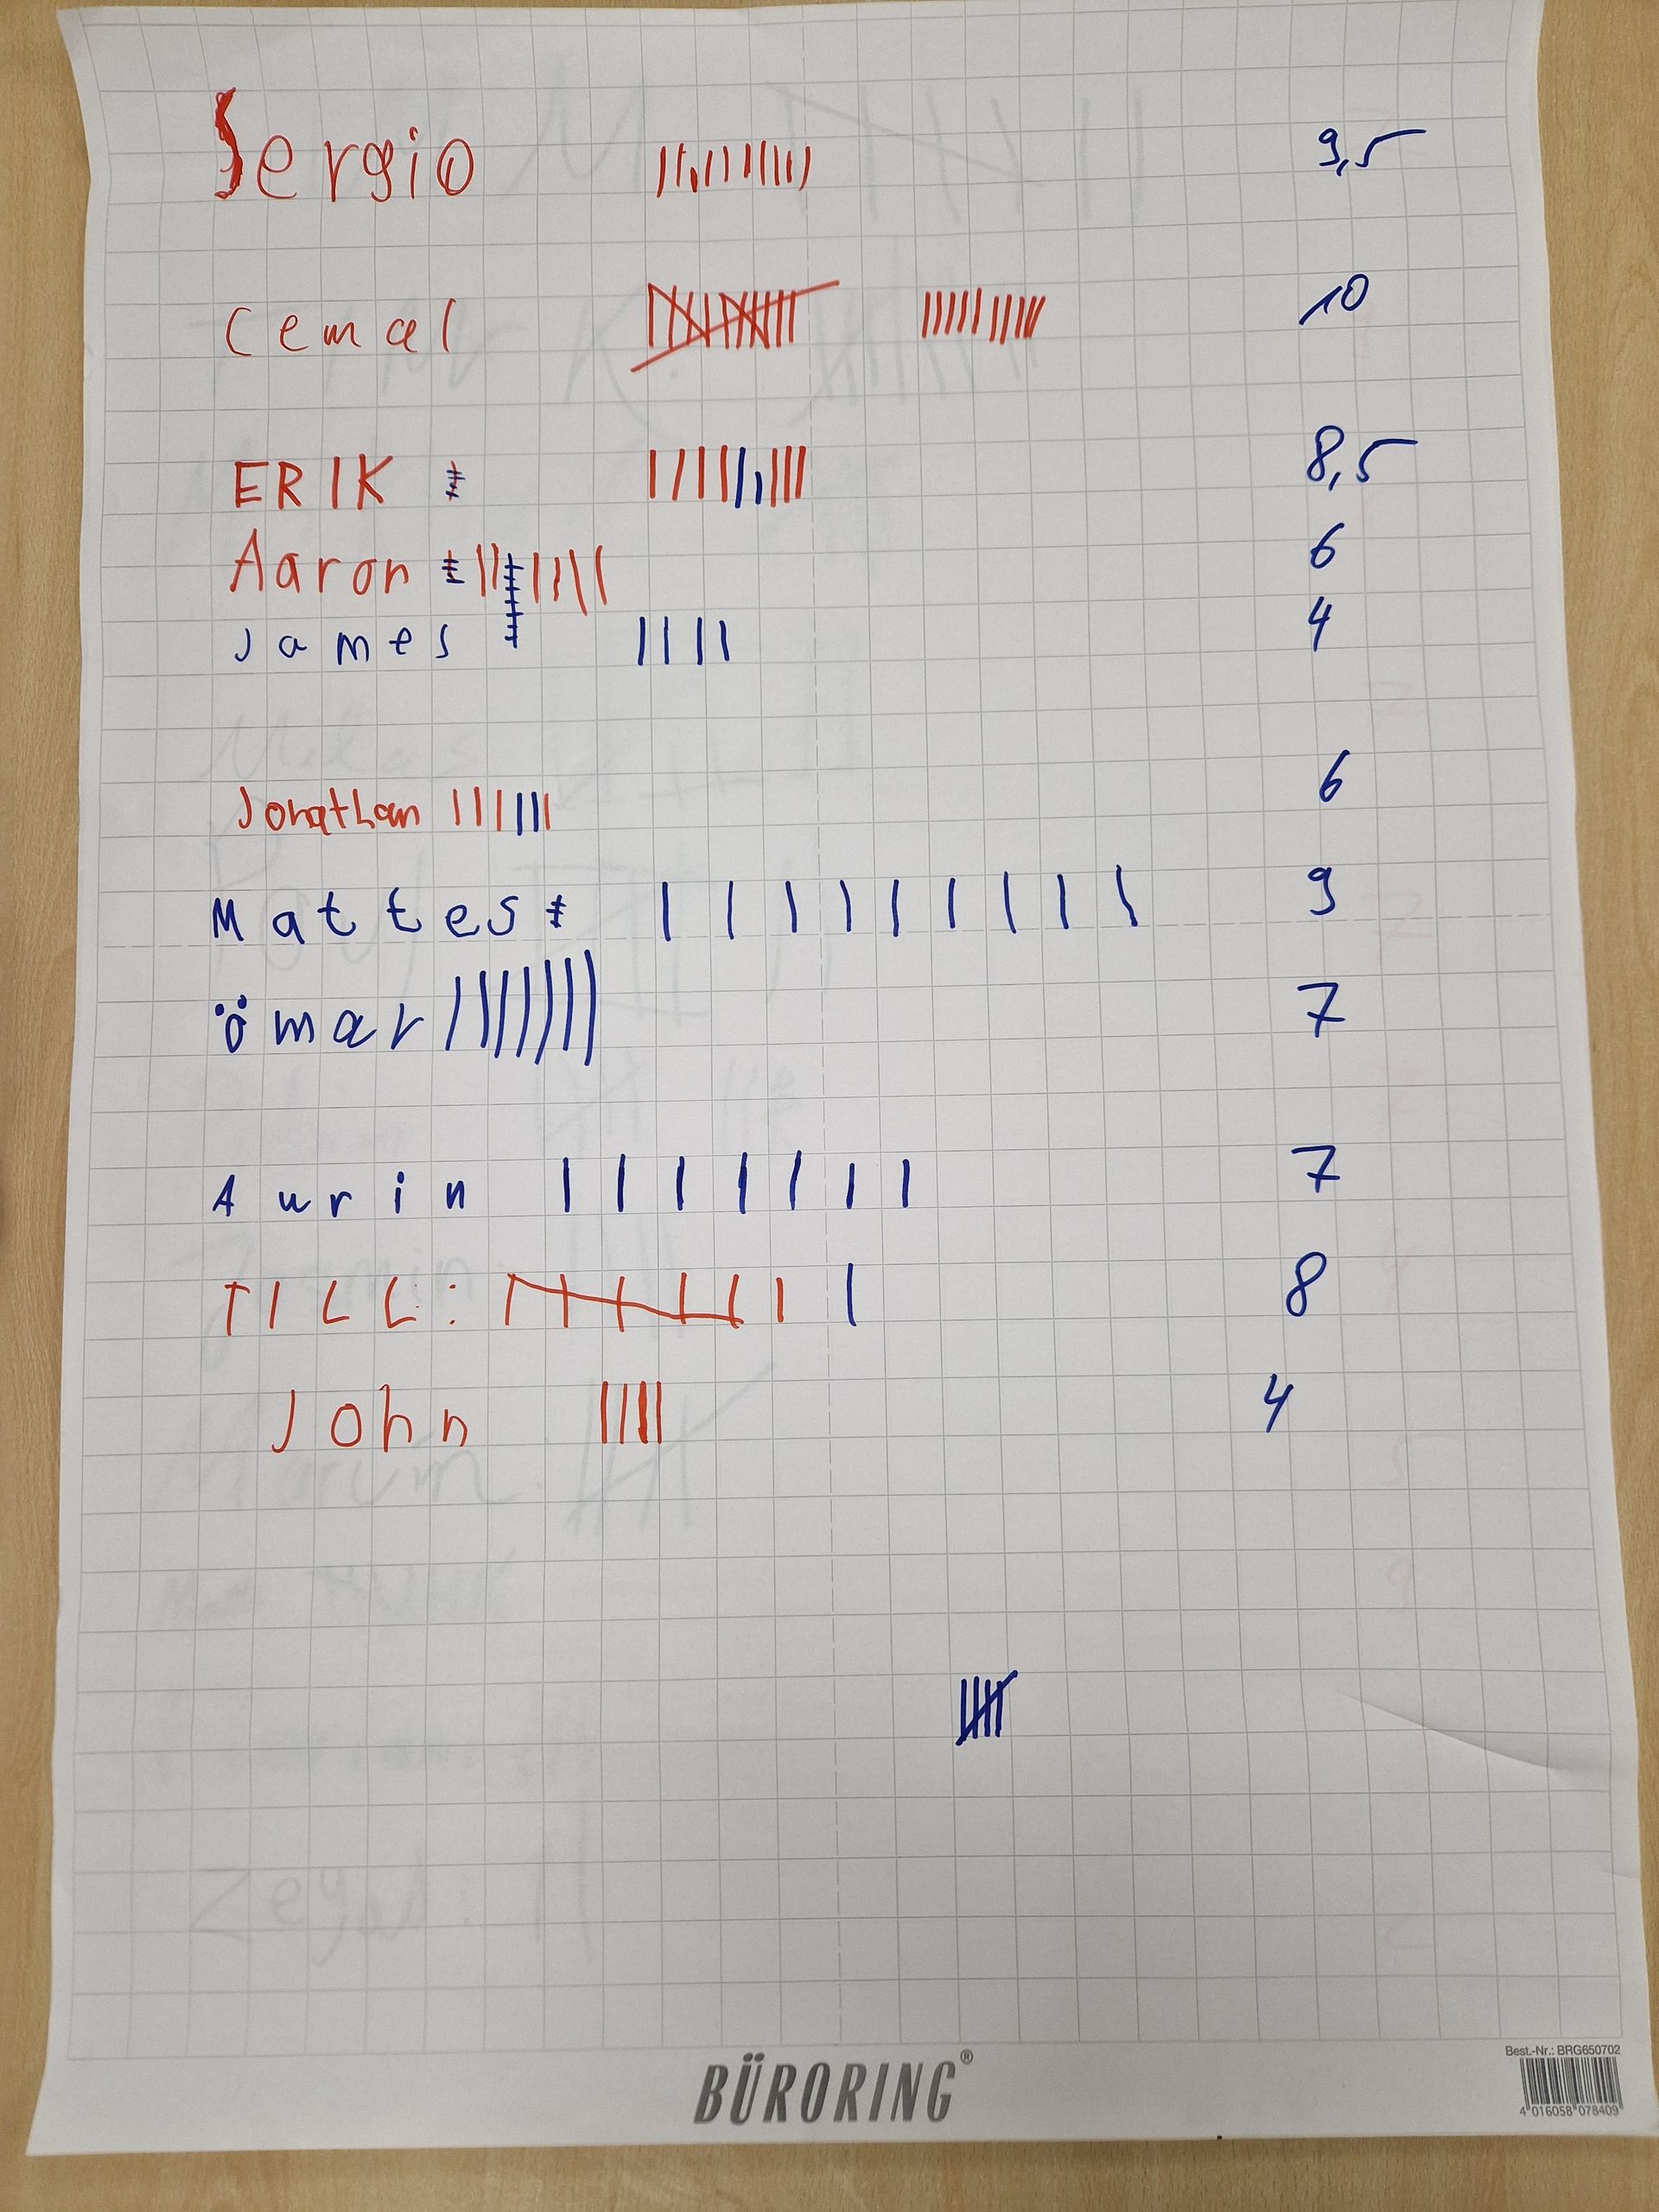 Sergio 9,5
Cemal 10
ERIK 8,5
Aaron 6
James 4
Jonathan 6
Mattes 9
ömar 7
Aurin 7
TILL: 8
John 4
BÜRORING®
Best.-Nr.: BRG650702
4 016058 078409